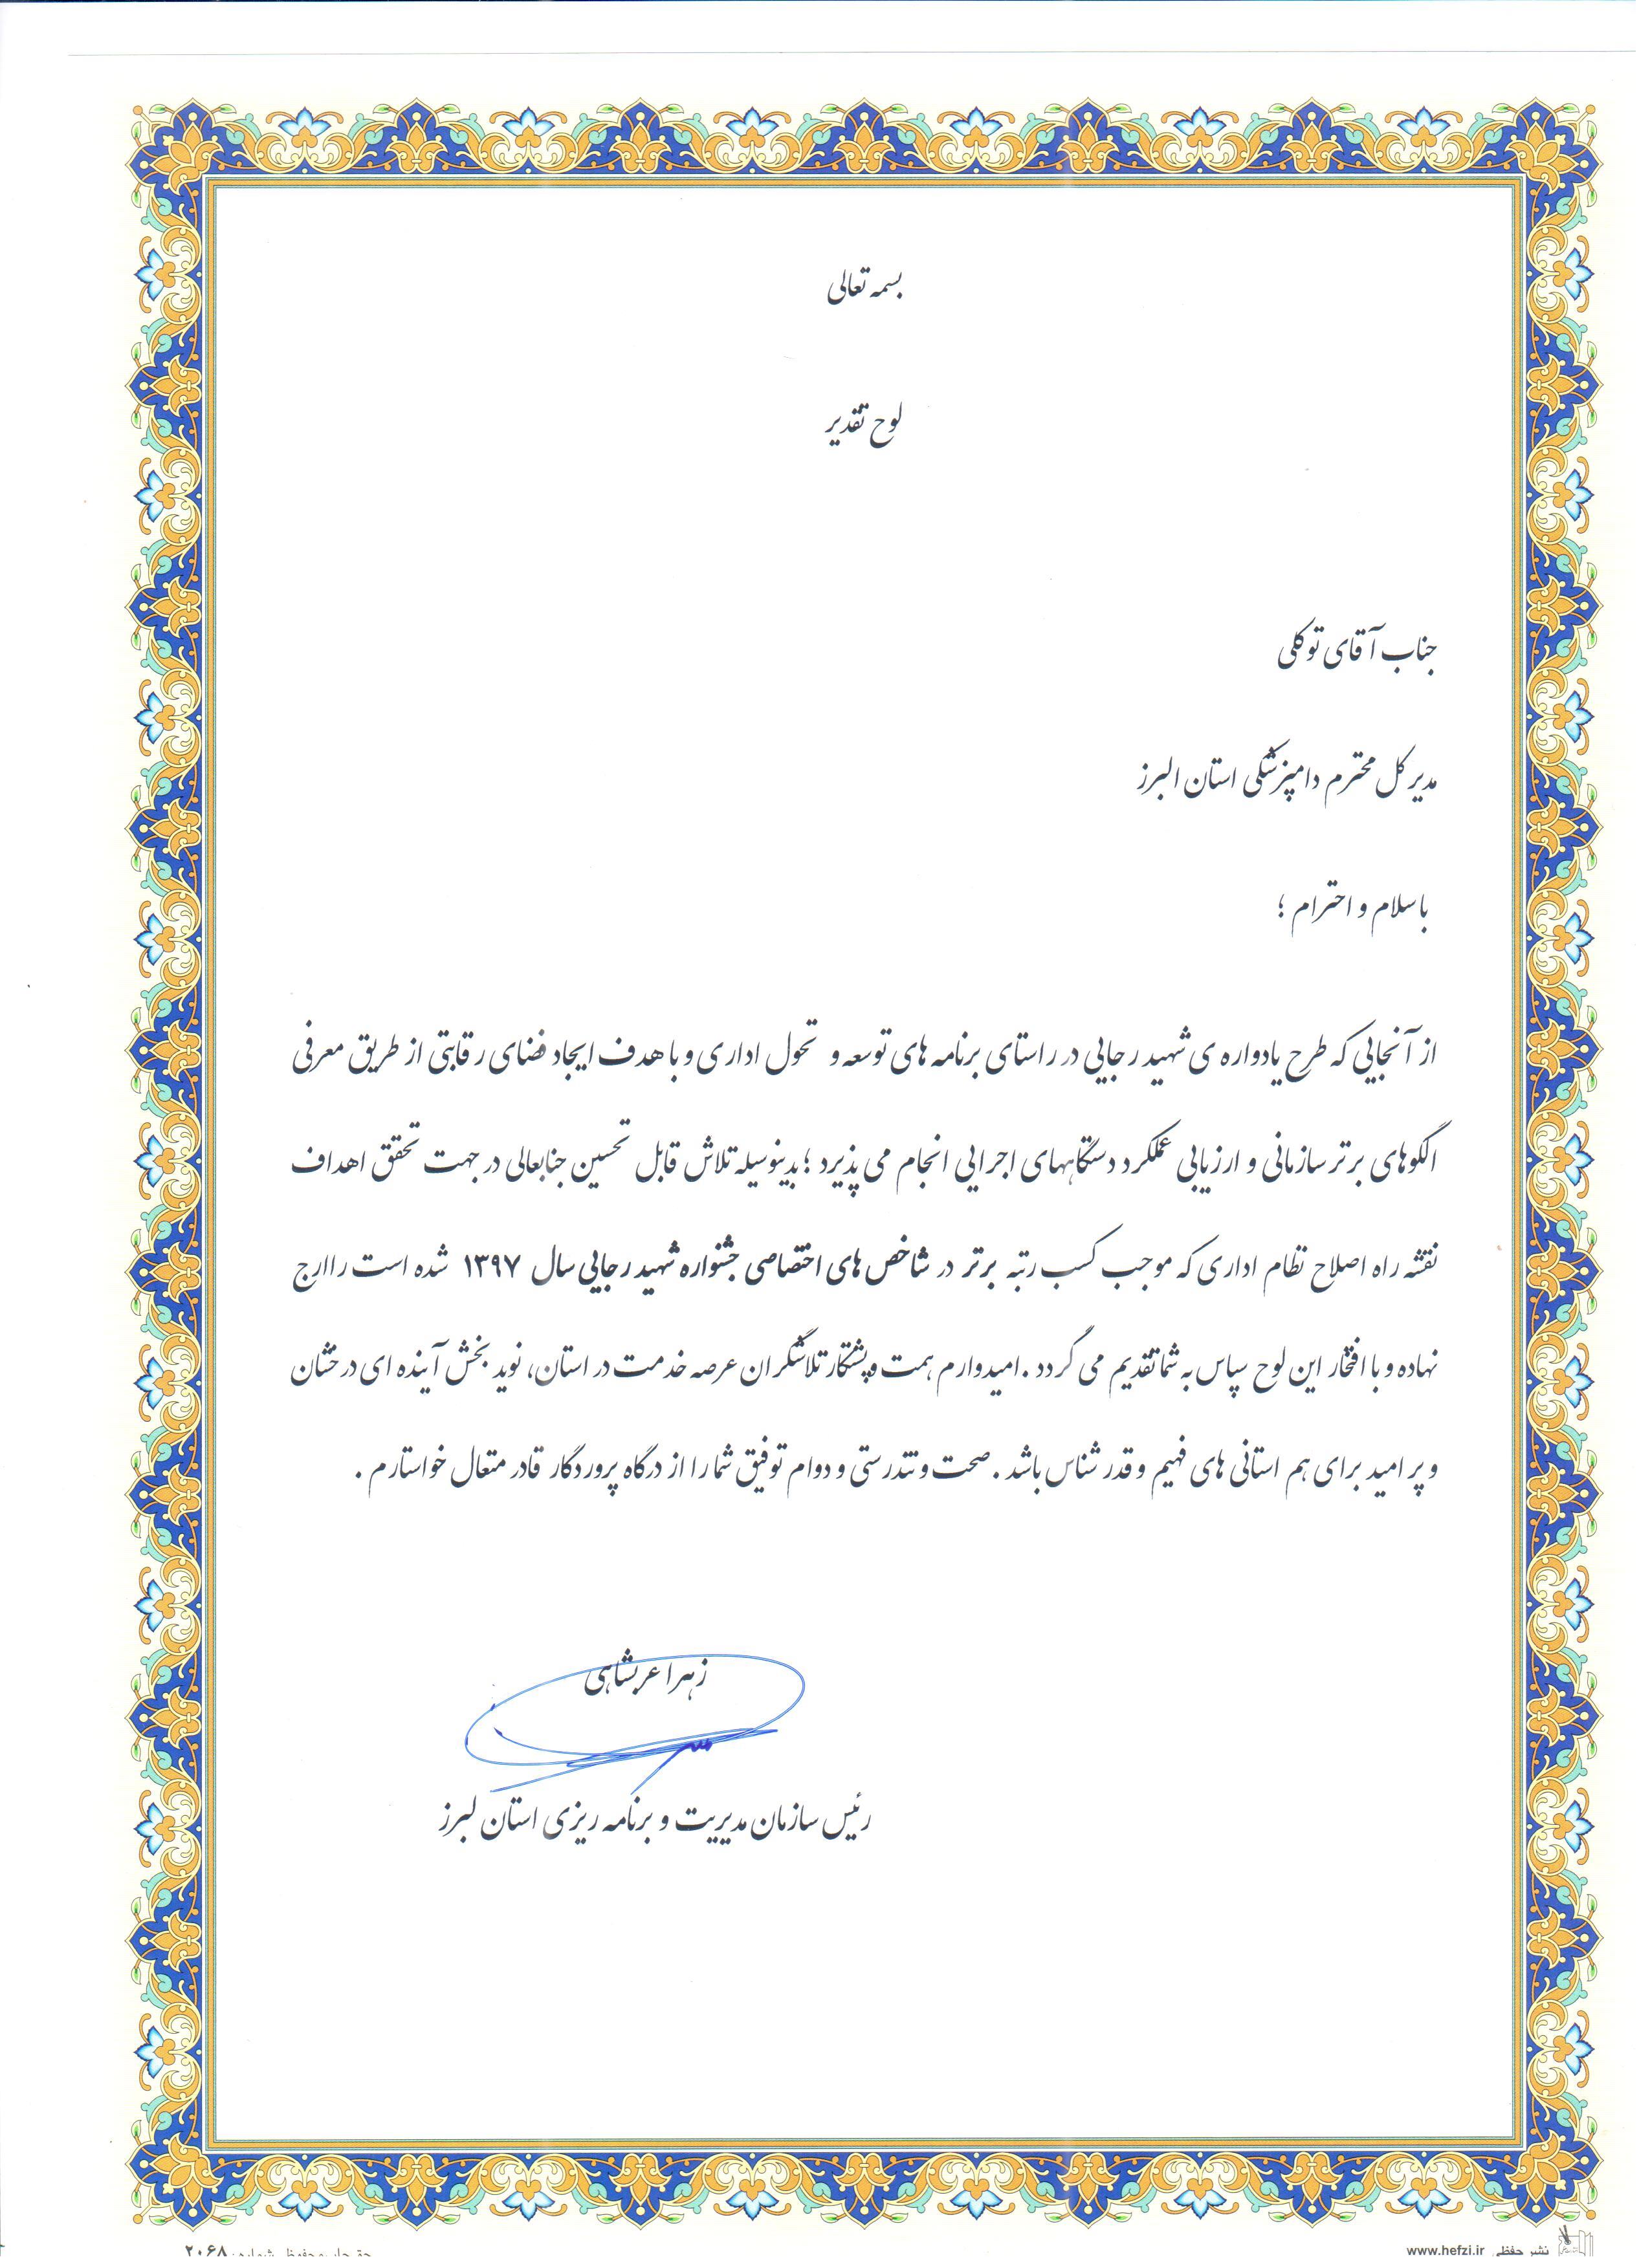 بسمه تعالی
لوح تقدیر
جناب آقای توکلی
مدیر کل محترم دامپزشکی استان البرز
با سلام و احترام ؛
از آنجایی که طرح یادواره ی شهید رجایی در راستای برنامه های توسعه و تحول اداری و با هدف ایجاد فضای رقابتی از طریق معرفی
الگوهای برتر سازمانی و ارزیابی عملکرد دستگاههای اجرایی انجام می پذیرد ؛ بدینوسیله تلاش قابل تحسین جنابعالی در جهت تحقق اهداف
نقشه راه اصلاح نظام اداری که موجب کسب رتبه برتر در شاخص های اختصاصی جشنواره شهید رجایی سال ۱۳۹۷ شده است را ارج
نهاده و با افتخار این لوح سپاس به شما تقدیم می گردد . امیدوارم همت و پشتکار تلاشگران عرصه خدمت در استان، نوید بخش آینده ای درخشان
و پر امید برای هم استانی های فهیم و قدر شناس باشد . صحت و تندرستی و دوام توفیق شما را از درگاه پروردگار قادر متعال خواستارم .
زهرا عربشاهی
رئیس سازمان مدیریت و برنامه ریزی استان لبرز
نشر حفظی www.hefzi.ir
۲۰۶۸